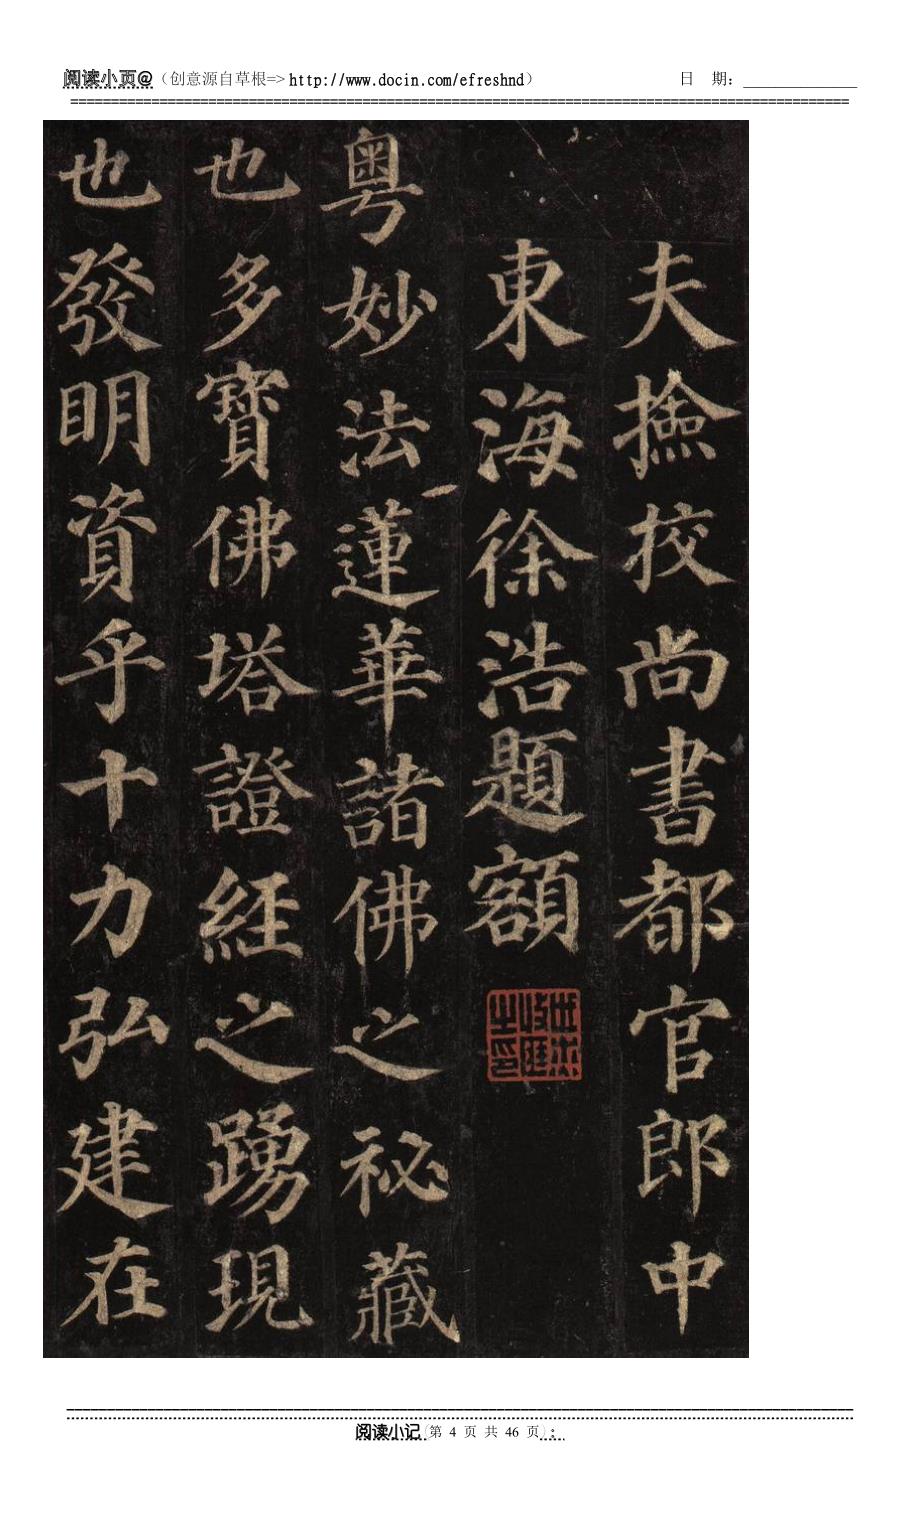 阅读小页@（创意源自草根=> http://www.docin.com/efreshnd） 日 期：
夫撿挍尚書都官郎中
東海徐浩題額
粤妙法蓮華諸佛之祕藏
也多寶佛塔證經之踴現
也發明資乎十力弘建在
阅读小记（第 4 页 共 46 页）：